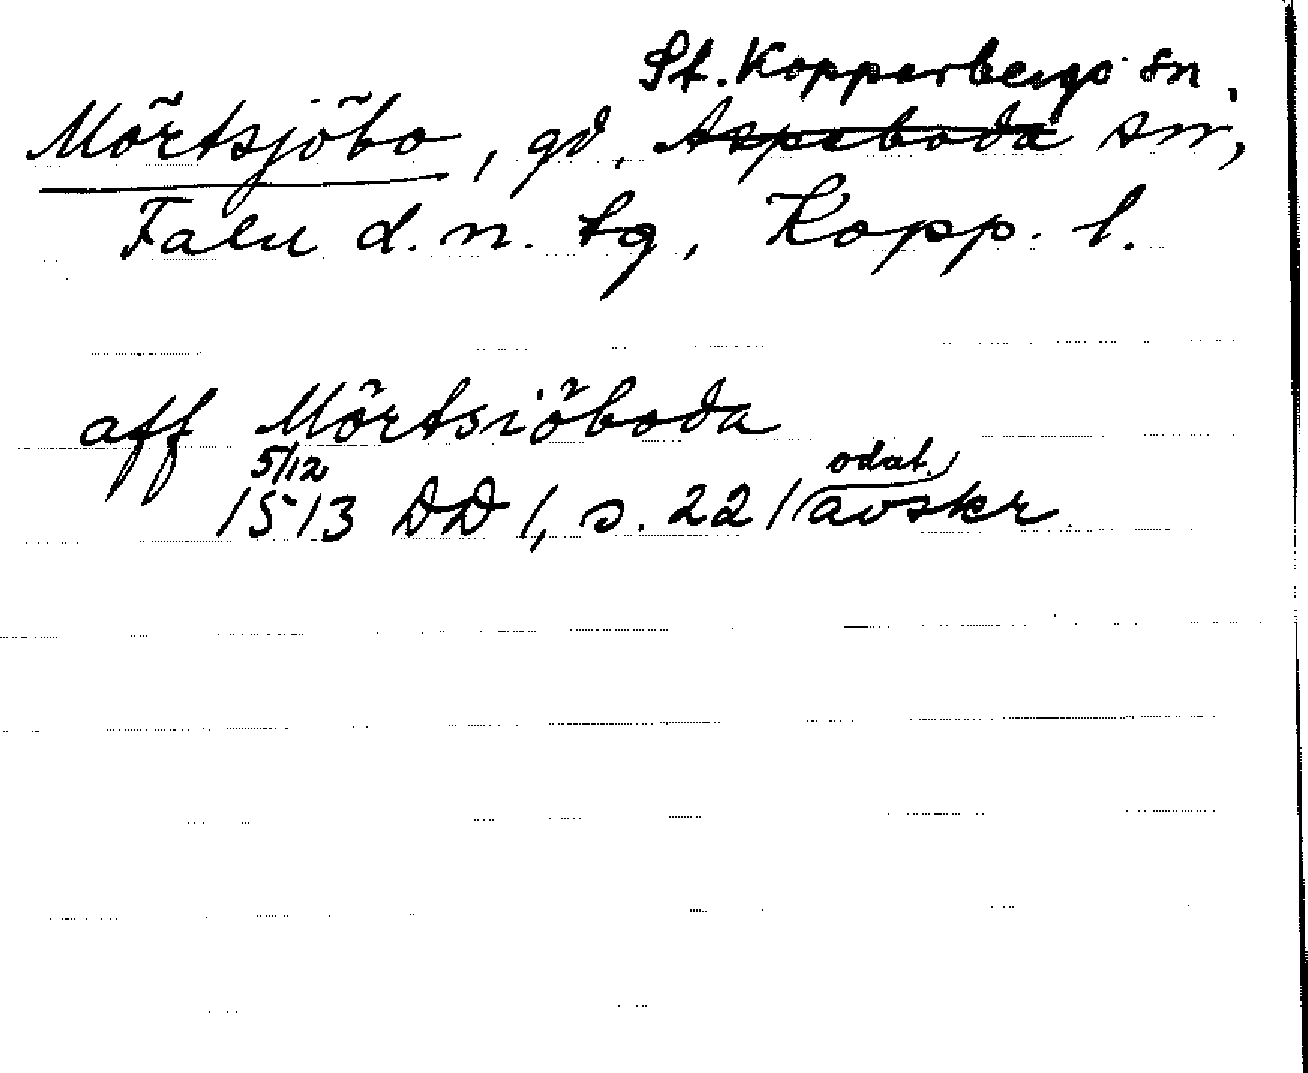 St. Kopparbergs sn,
Mörtsjöbo, gd, Aspeboda sn,
Falu d.n. tg, Kopp. l.
aff Mörtsiöboda
5/12 odat.
1513 DD 1, s. 221 avskr.